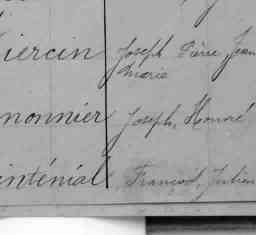 iercin Joseph Pierre Jean
Marie
nonnier Joseph, Honoré
inténial François, Julien